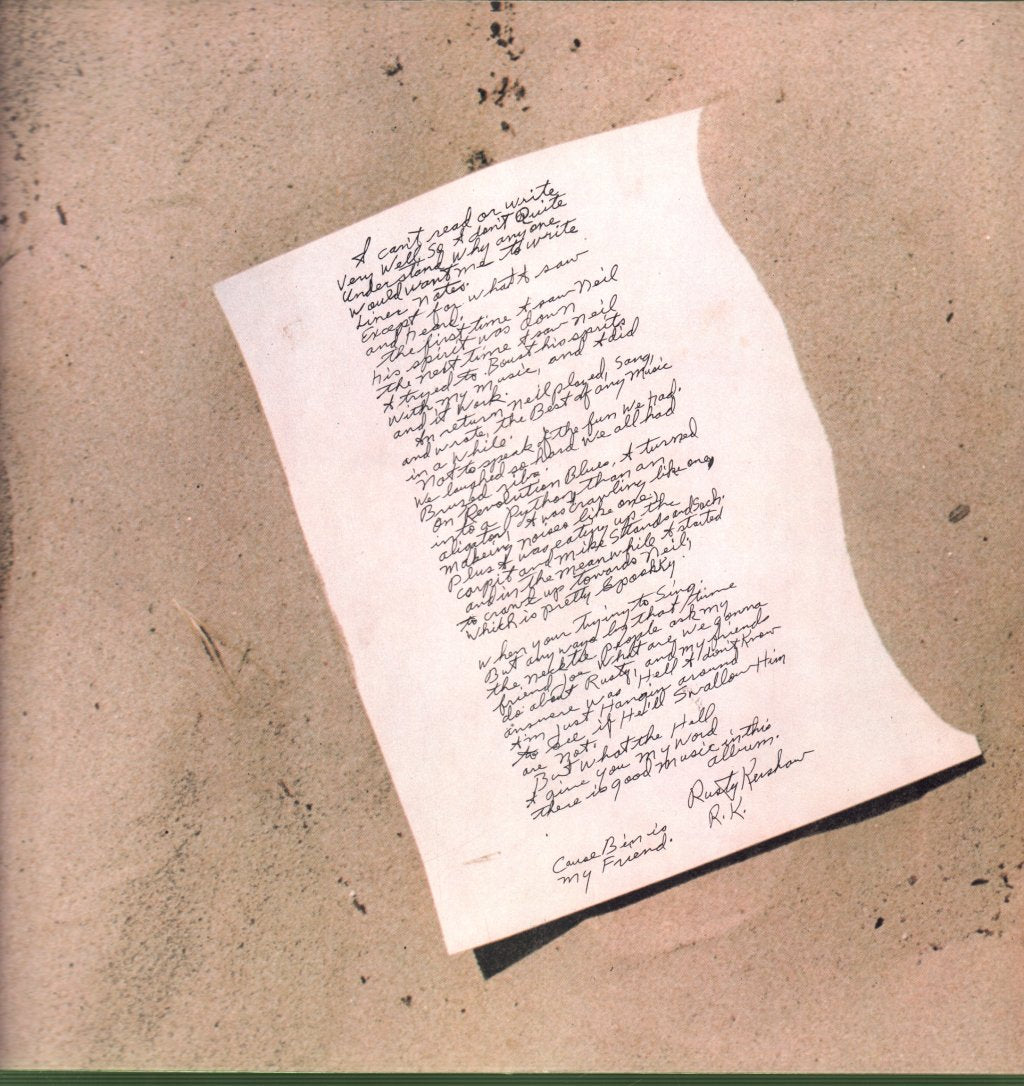 I can't read or write
very Well, So I don't Quite
Understand Why anyone
Would want me to write
Liner Notes.
Except for what I saw
and heard,
the first time I saw Neil
his spirit was down
the next time I saw Neil
I tryed to Boust his sprits
With my Music, and I did
and it Work.
In return Neil played, Sang,
and wrote, the Best of any Music
in a while.
Not to speak of the fun we had.
We laughed so hard we all had
Bruzed ribs.
on Revolution Blues, I turned
into a Python, than an
aligator, I was crawling like one,
makeing noises like one,
Plus I was eating up the
carpit and Mike Stands and Such.
and in the meanwhile I started
to crawl up towards Neil,
which is pretty Spookky
when your trying to Sing.
But anyways by that time
the necktie People ask my
friend Joe What are we gonna
do about Rusty, and my friends
answere was, Hell I don't Know
I'm Just Hangin around
to See if He'll Swallow Him
are Not.
But What the Hell
I give you my Word
there is good Music in this
album.
Rusty Kershaw
R.K.
Cause Ben is
my Friend.